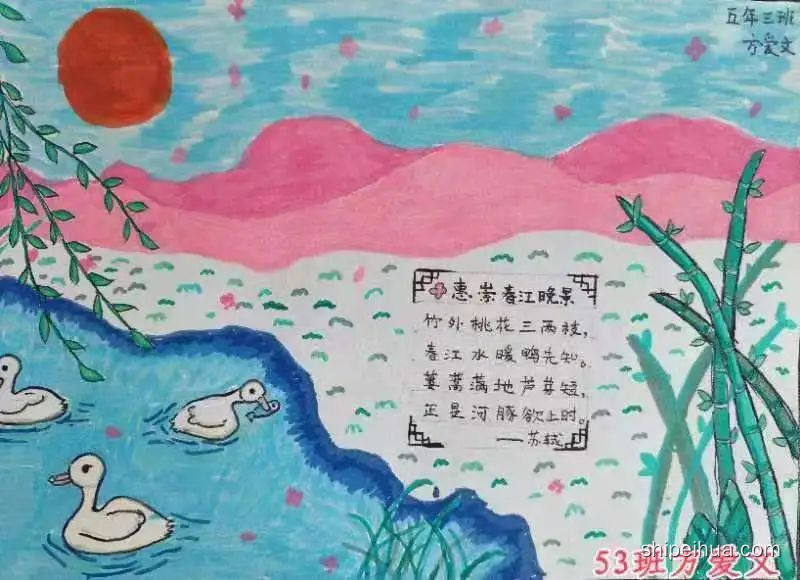 五年三班
方爱文
惠崇春江晚景
竹外桃花三两枝，
春江水暖鸭先知。
蒌蒿满地芦芽短，
正是河豚欲上时。
——苏轼
53班方爱文
shipeihua.com